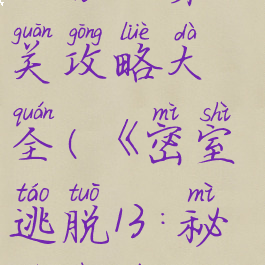 guān gōng lüè dà
关攻略大
quán mì shì
全(《密室
táo tuō mì
逃脱13:秘